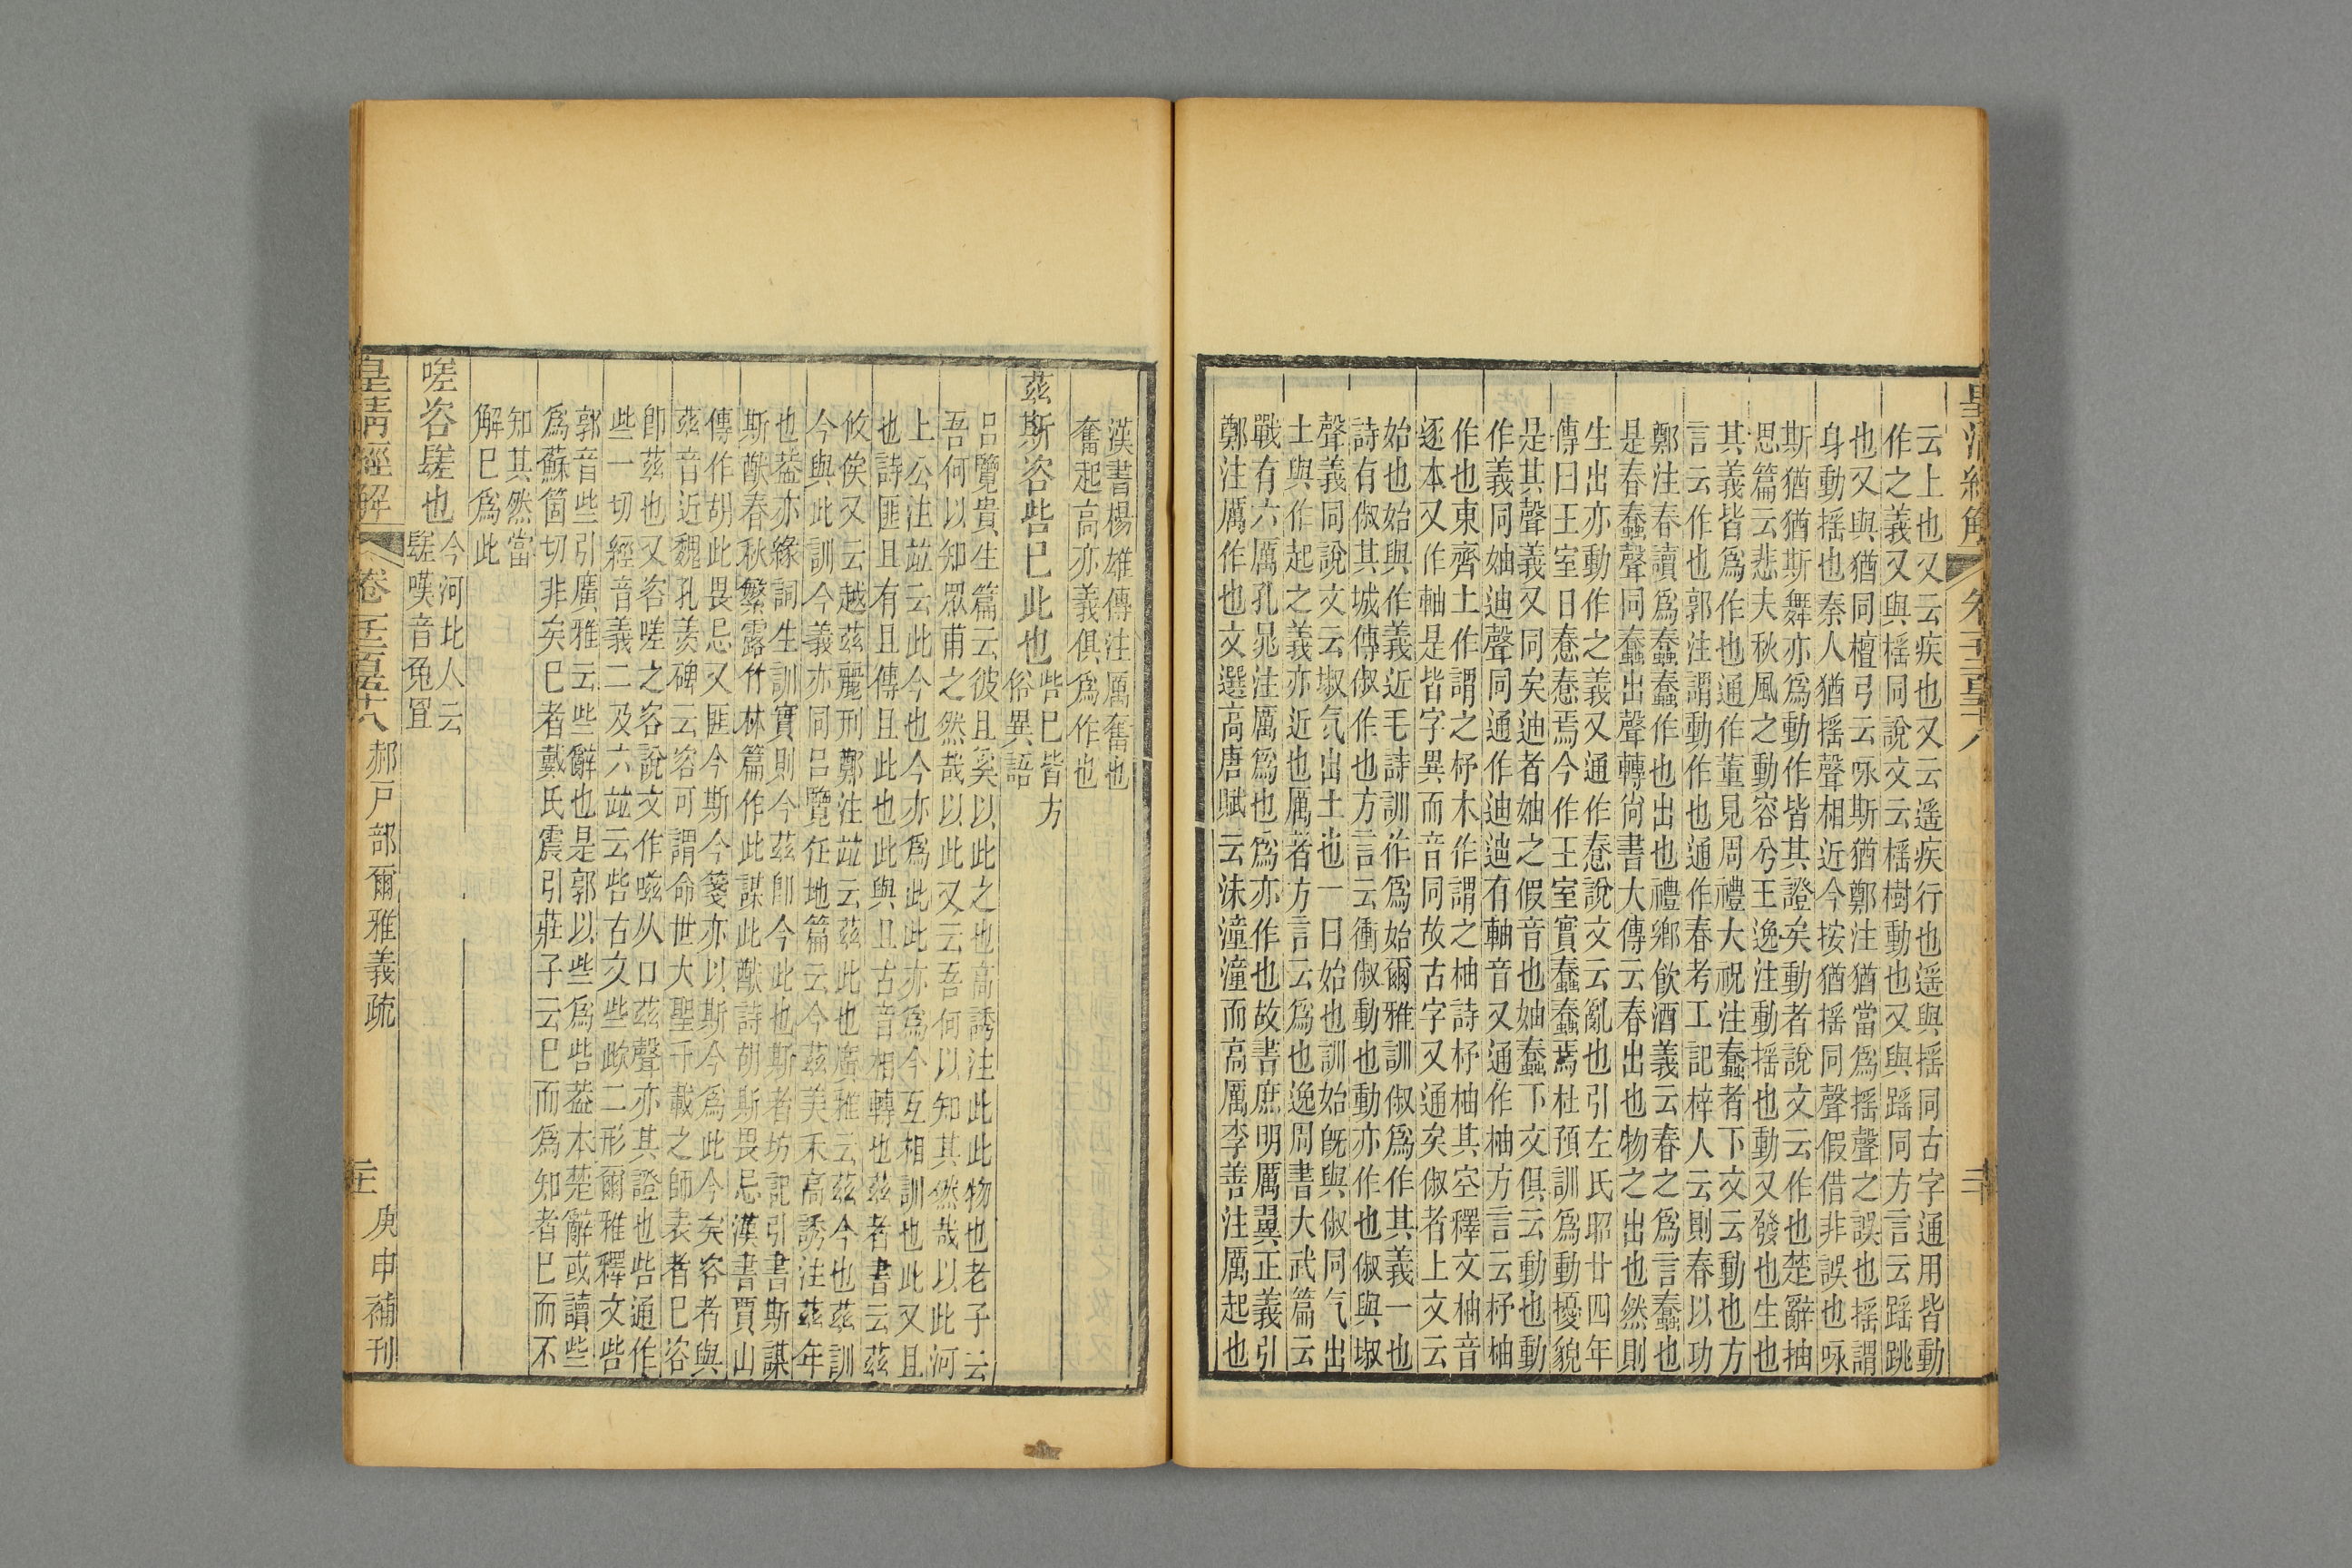 皇清經解
卷一千二百五十八
二十
云上也又云疾也又云遥疾行也遥與揺同古字通用皆動
作之義又與榣同說文云榣樹動也又與蹃同方言云蹃跳
也又與猶同檀弓云咏斯猶鄭注猶當爲揺聲之誤也揺謂
身動揺也秦人猶揺聲相近今按猶揺同聲假借非誤也咏
斯猶猶斯舞亦爲動作皆其證矣動者說文云作也楚辭抽
思篇云悲夫秋風之動容兮王逸注動揺也動又發也生也
其義皆爲作也通作董見周禮大祝注蠢者下文云動也方
言云作也郭注謂動作也通作春考工記梓人云則春以功
鄭注春讀爲蠢蠢作也出也禮鄉飲酒義云春之爲言蠢也
是春蠢聲同蠢出聲轉尚書大傳云春出也物之出也然則
生出亦動作之義又通作惷說文云亂也引左氏昭廿四年
傳曰王室日惷惷焉今作王室實蠢蠢焉杜預訓爲動擾貌
是其聲義又同矣迪者妯之假音也妯蠢下文俱云動也動
作義同妯迪聲同通作迪迪有軸音又通作柚方言云杼柚
作也東齊土作謂之杼木作謂之柚詩杼柚其空釋文柚音
逐本又作軸是皆字異而音同故古字又通矣俶者上文云
始也始與作義近毛詩訓作爲始爾雅訓俶爲作其義一也
詩有俶其城傳俶作也方言云衝俶動也動亦作也俶與埱
聲義同說文云埱气出土也一曰始也訓始旣與俶同气出
土與作起之義亦近也厲者方言云爲也逸周書大武篇云
戰有六厲孔晁注厲爲也爲亦作也故書庶明厲翼正義引
鄭注厲作也文選高唐賦云沬潼潼而高厲李善注厲起也
漢書楊雄傳注厲奮也
奮起高亦義俱爲作也
茲斯咨呰已此也
呰已皆方
俗異語
呂覽貴生篇云彼且奚以此之也高誘注此此物也老子云
吾何以知眾甫之然哉以此又云吾何以知其然哉以此河
上公注竝云此今也今亦爲此此亦爲今互相訓也此又且
也詩匪且有且傳且此也此與且古音相轉也茲者書云茲
攸俟又云越茲麗刑鄭注竝云茲此也廣雅云茲今也茲訓
今與此訓今義亦同呂覽任地篇云今茲美禾高誘注茲年
也葢亦緣詞生訓實則今茲卽今此也斯者坊記引書斯謀
斯猷春秋繁露竹林篇作此謀此猷詩胡斯畏忌漢書賈山
傳作胡此畏忌又匪今斯今箋亦以斯今爲此今矣咨者與
茲音近魏孔羨碑云咨可謂命世大聖千載之師表者已咨
卽茲也又咨嗟之咨說文作嗞从口茲聲亦其證也呰通作
些一切經音義二及六竝云呰古文些欪二形爾雅釋文呰
郭音些引廣雅云些辭也是郭以些爲呰葢本楚辭或讀些
爲蘇箇切非矣已者戴氏震引莊子云已而爲知者已而不
知其然當
解已爲此
嗟咨䰈也
今河北人云
䰈嘆音兔罝
皇清經解
卷一千二百五十八
郝戶部爾雅義疏
二十一
庚申補刊